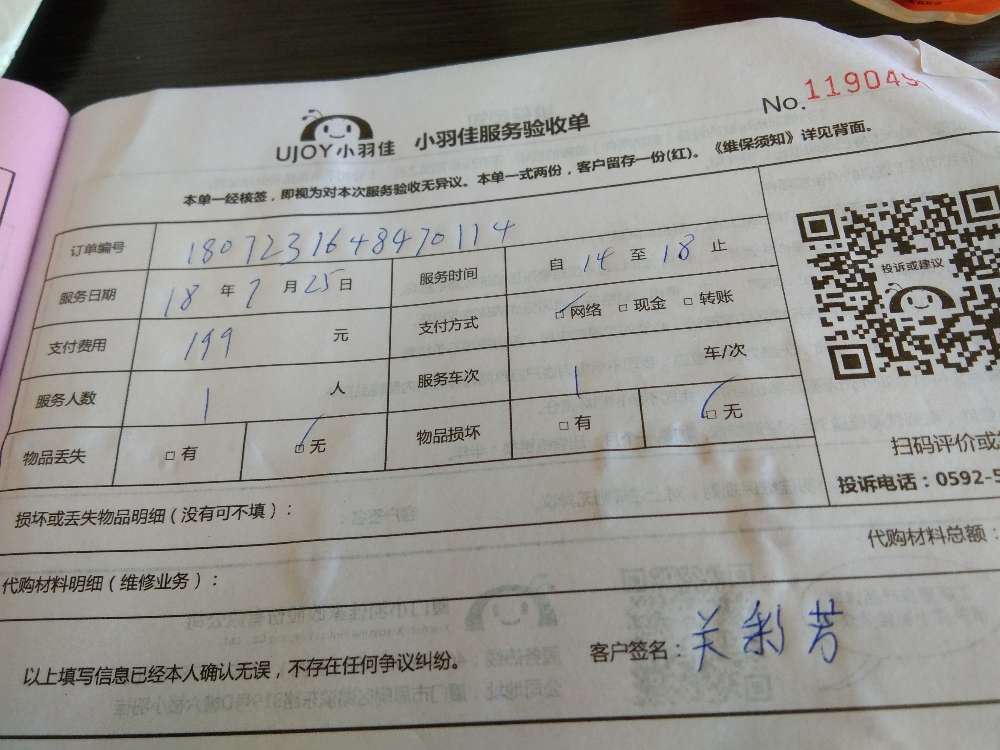 No.119049
UJOY小羽佳 小羽佳服务验收单
本单一经核签，即视为对本次服务验收无异议。本单一式两份，客户留存一份(红)。《维保须知》详见背面。
订单编号 1807231648470114
服务日期 18 年 7 月 25 日 服务时间 自 14 至 18 止
投诉或建议
支付费用 199 元 支付方式 □网络 □现金 □转账
服务人数 1 人 服务车次 1 车/次
物品丢失 □有 □无 物品损坏 □有 □无
扫码评价或
投诉电话：0592-5
损坏或丢失物品明细（没有可不填）：
代购材料明细（维修业务）： 代购材料总额：
以上填写信息已经本人确认无误，不存在任何争议纠纷。 客户签名：关彩芳